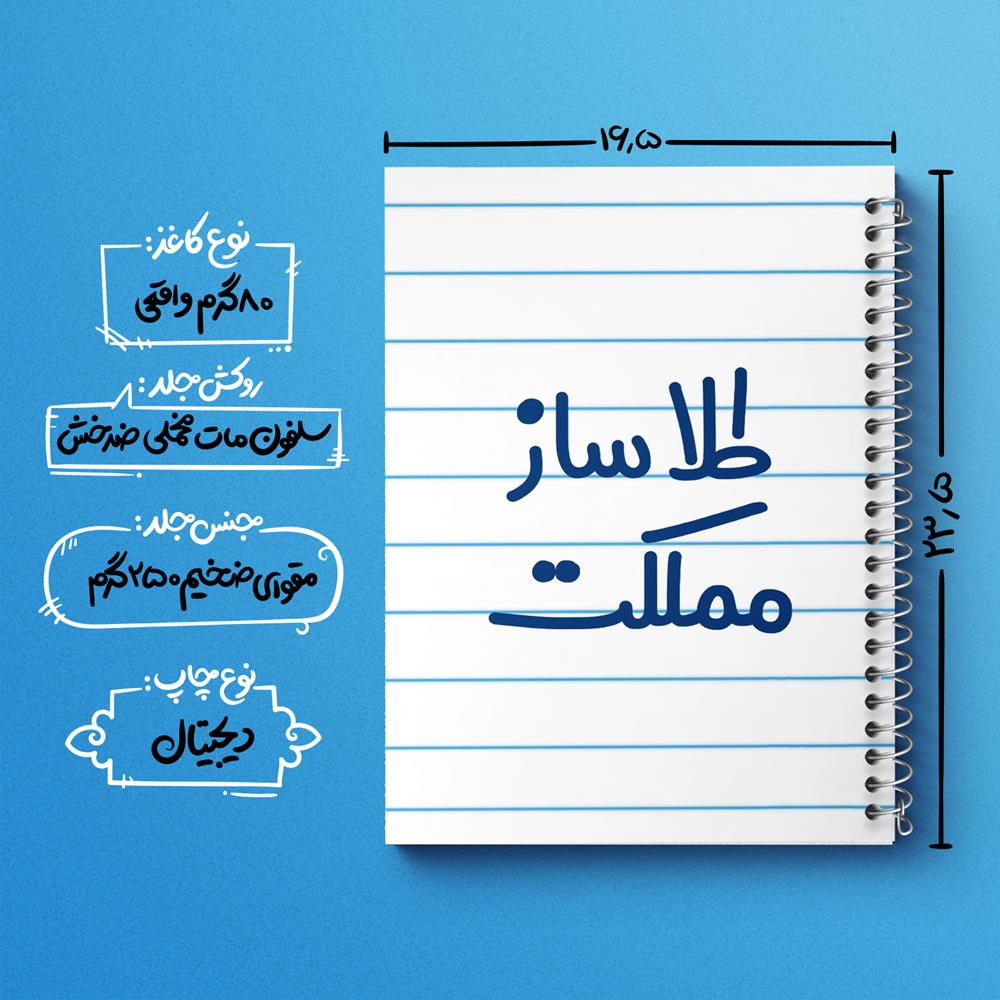 ۱۶٫۵
۲۳٫۵
نوع کاغذ:
۸۰ گرم واقعی
روکش جلد:
سلفون مات مخملی ضدخش
جنس جلد:
مقوای ضخیم ۲۵۰ گرم
نوع چاپ:
دیجیتال
طلا ساز
مملکت